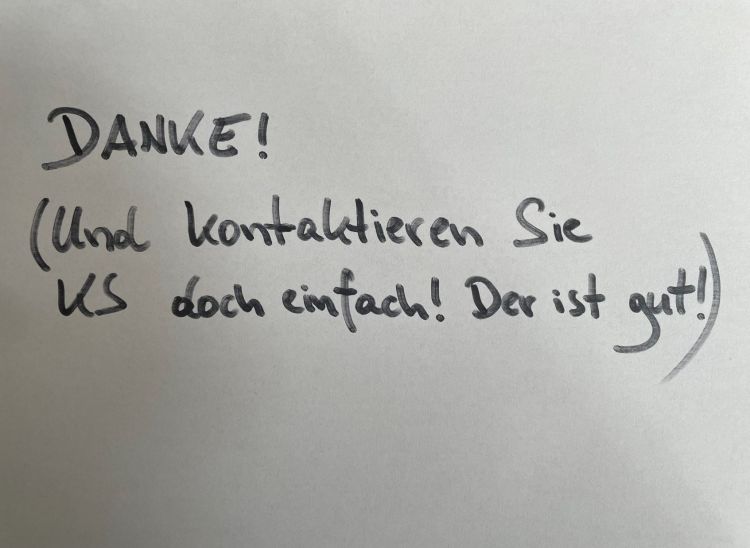 DANKE!
(Und kontaktieren Sie
KS doch einfach! Der ist gut!)